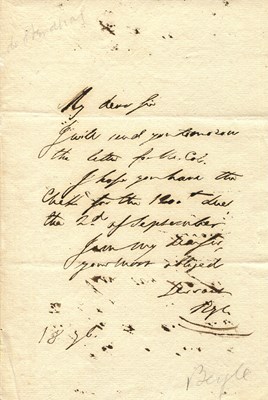 My dear Sir
I will send you tomorrow
the letter for the Col.
I hope you have the
Check for the 1200 due
the 2d of September
I am my dear Sir
your most obliged
Servant
18 96.
Beyle